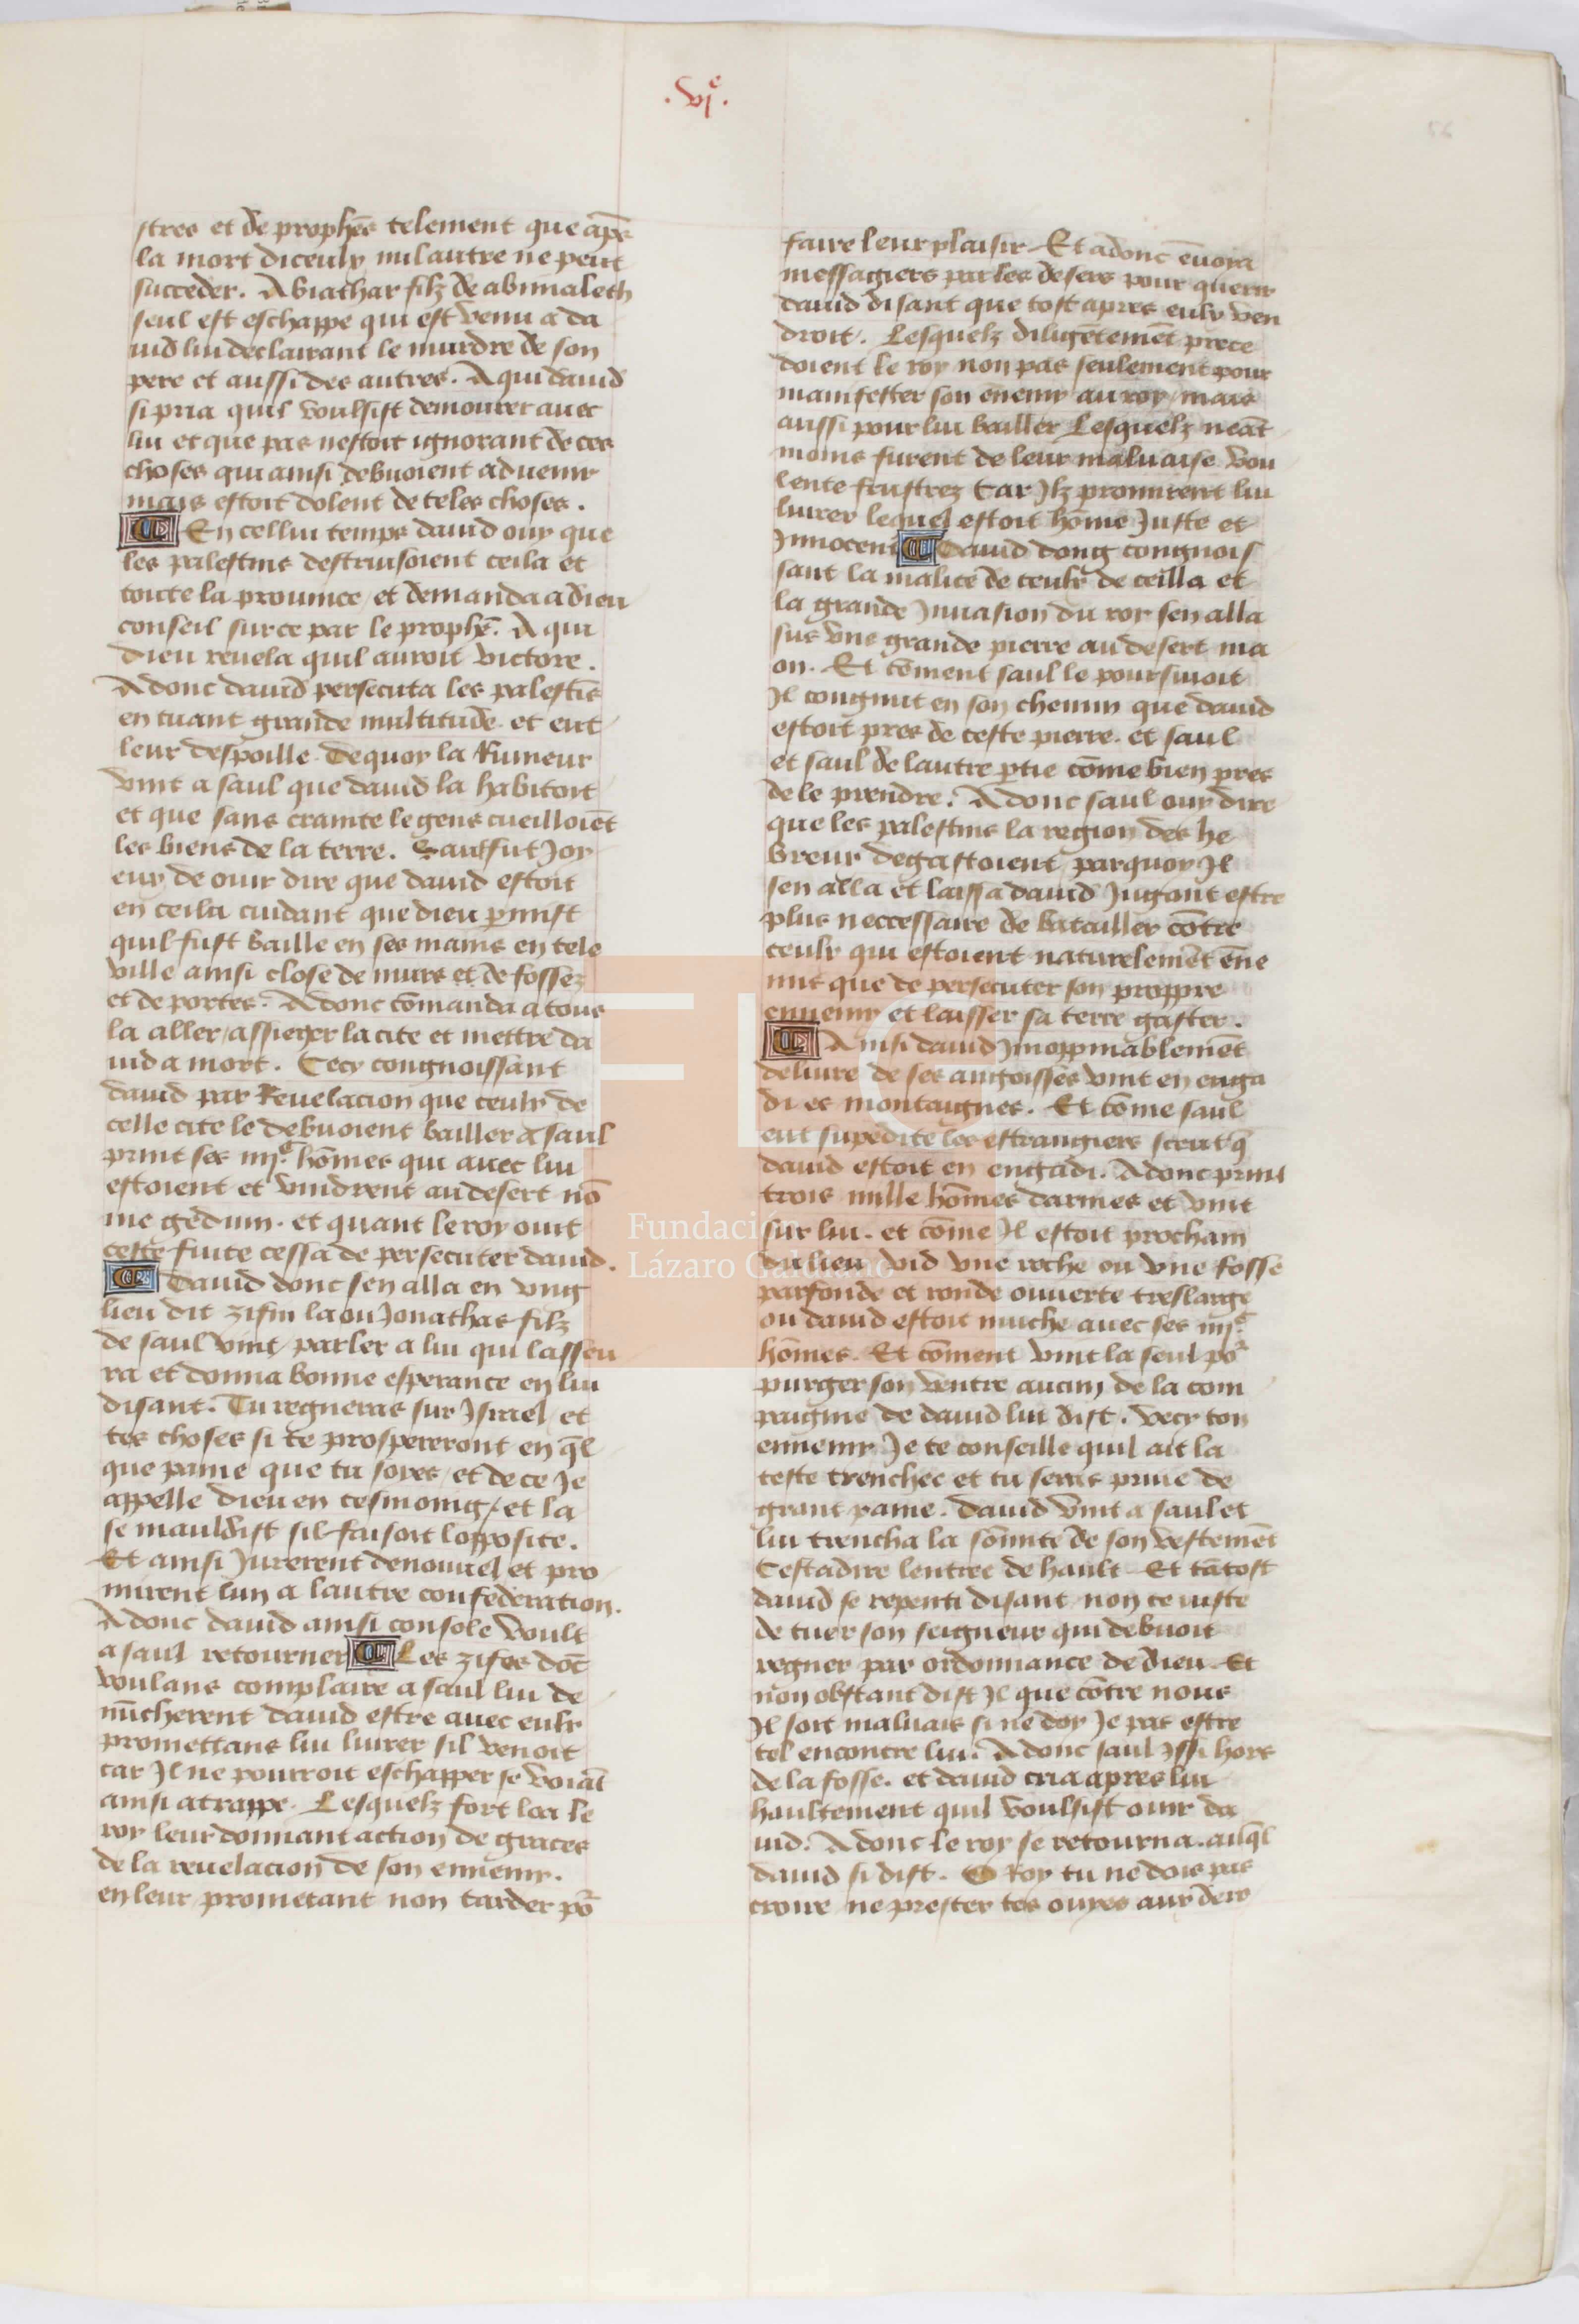 .vjᵉ.
56
stres et de prophēs telement que apēs
la mort diceulx nul autre ne peut
succeder. Abiathar filz de abimaleth
seul est eschappe qui est venu a da
uid lui declairant le murdre de son
pere et aussi des autres. A qui dauid
si pria quil voulsist demourer auec
lui et que pas nestoit ignorant de ces
choses qui ainsi debuoient aduenir
mais estoit dolent de teles choses.
¶ En cellui temps dauid ouy que
les palestins destruisoient ceila et
toute la prouince / et demanda a dieu
conseil sur ce par le prophē. A qui
dieu reuela quil auroit victore.
Adonc dauid persecuta les palestīs
en tuant grande multitude. et eut
leur despoille. Dequoy la Rumeur
vint a saul que dauid la habitoit
et que sans crainte le gens cueilloiēt
les biens de la terre. Saul fut Joy
eux de ouir dire que dauid estoit
en ceila cuidant que dieu p̄mist
quil fust baille en ses mains en tele
ville ainsi close de murs et de fossez
et de portes. Adonc cōmanda a tous
la aller / assieger la cite et mettre da
uid a mort. Cecy congnoissant
dauid par Reuelacion que ceulx de
celle cite le debuoient bailler a saul
print ses iiijᶜ hōmes qui auec lui
estoient et vindrent au desert nō
me gedum. et quant le roy ouit
ceste fuite cessa de persecuter dauid.
¶ Dauid donc sen alla en vng
lieu dit zifin la ou Jonathas filz
de saul vint / parler a lui qui lasseu
ra et donna bonne esperance en lui
disant. Tu regneras sur Israel / et
tes choses si te prospereront en q̄l
que paine que tu soyes / et de ce Je
appelle dieu en tesmoing / et la
se mauldist sil faisoit lopposite.
Et ainsi Jurerent denouuel et pro
mirent lun a lautre confederation.
Adonc dauid ainsi console voult
a saul retourner ¶ Les zifes dōt
voulans complaire a saul lui de
nūcherent dauid estre auec eulx
promettans lui liurer sil venoit
car Il ne pourroit eschapper se voiāt
ainsi atrappe. Lesquelz fort loa le
roy leur donnant action de graces
de la reuelacion de son ennemy.
en leur prometant non tarder po᷑
faire leur plaisir. Et adonc ēuoya
messagiers par les desers pour querir
dauid disant que tost apres eulx ven
droit. Lesquelz diligētemēt prece
doient le roy non pas seulement pour
manifester son ēnemy au roy / mais
aussi pour lui bailler Lesquelz neāt
moins furent de leur maluaise vou
lente frustrez Car Ilz promirent lui
liurer lequel estoit hōme Juste et
Innocent ¶ Dauid donq congnois
sant la malice de ceulx de ceilla et
la grande Inuasion du roy sen alla
sur vne grande pierre au desert ma
on. Et cōment saul le poursuioit
Il congnut en son chemin que dauid
estoit pres de ceste pierre. et saul
et saul de lautre p̄tie cōme bien pres
de le prendre. Adonc saul ouy dire
que les palestins la region des he
breux degastoient / parquoy Il
sen alla et laissa dauid Jugant estre
plus neccessaire de batailler cōtre
ceulx qui estoient naturelemēt ēne
mis que de persecuter son proppre
ennemy et laisser sa terre gaster.
¶ Ainsi dauid Inoppinablemēt
deliure de ses angoisses vint en enga
di es montaignes. Et cōme saul
eut supedite les estrangiers sceut q̄
dauid estoit en engadi. Adonc print
trois mille hōmes darmes et vint
sur lui. et cōme Il estoit prochain
du lieu vid vne roche ou vne fosse
parfonde et ronde ouuerte treslarge
ou dauid estoit muche auec ses iiijᶜ
hōmes. Et cōment vint la seul po᷑
purger son ventre aucun de la com
paignie de dauid lui dist. vecy ton
ennemy Je te conseille quil ait la
teste trenchee et tu seras priue de
grant paine. dauid vint a saul et
lui trencha la sōmite de son vestemēt
Cestadire lentree de hault. Et tātost
dauid se repenti disant / non ce iuste
de tuer son seigneur qui debuoit
regner par ordonnance de dieu. Et
non obstant dist Il que cōtre nous
Il soit maluais si ne doy Je pas estre
tel encontre lui. Adonc saul Issi hors
de la fosse. et dauid cria apres lui
haultement quil voulsist ouir da
uid. Adonc le roy se retourna. auq̄l
dauid si dist. O Roy tu ne dois pas
croire ne prester tes ouyes aux
Fundación
Lázaro Galdiano